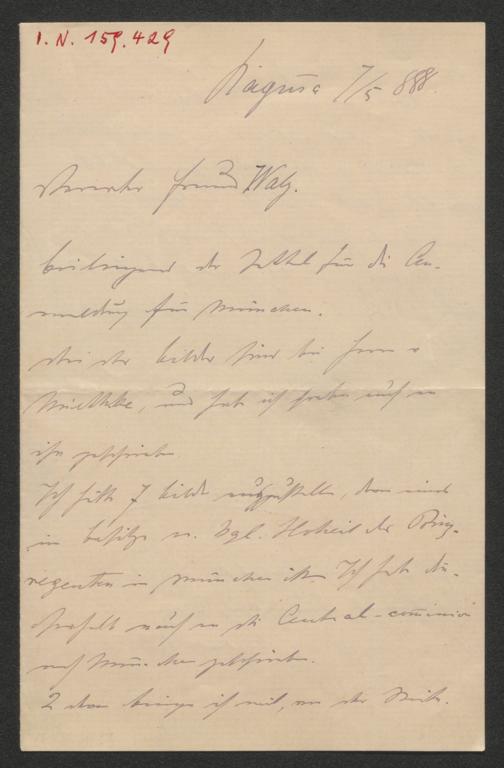 I. N. 159.429
Ragusa 7/5 888.
Verehrter Freund Walz.
beiliegend die Zettel für die An-
meldung für München.
die bilder sind bei Herrn v
Miethke, und habe ich soeben auch an
ihn geschrieben.
Ich hätte 7 bilder auszustellen, davon eines
im besitze v. Kgl. Hoheit des Prinz-
regenten in München ist. Ich habe
deshalb auch an die Central-comission
nach München geschrieben.
2 davon bringe ich mit, von der Reise.